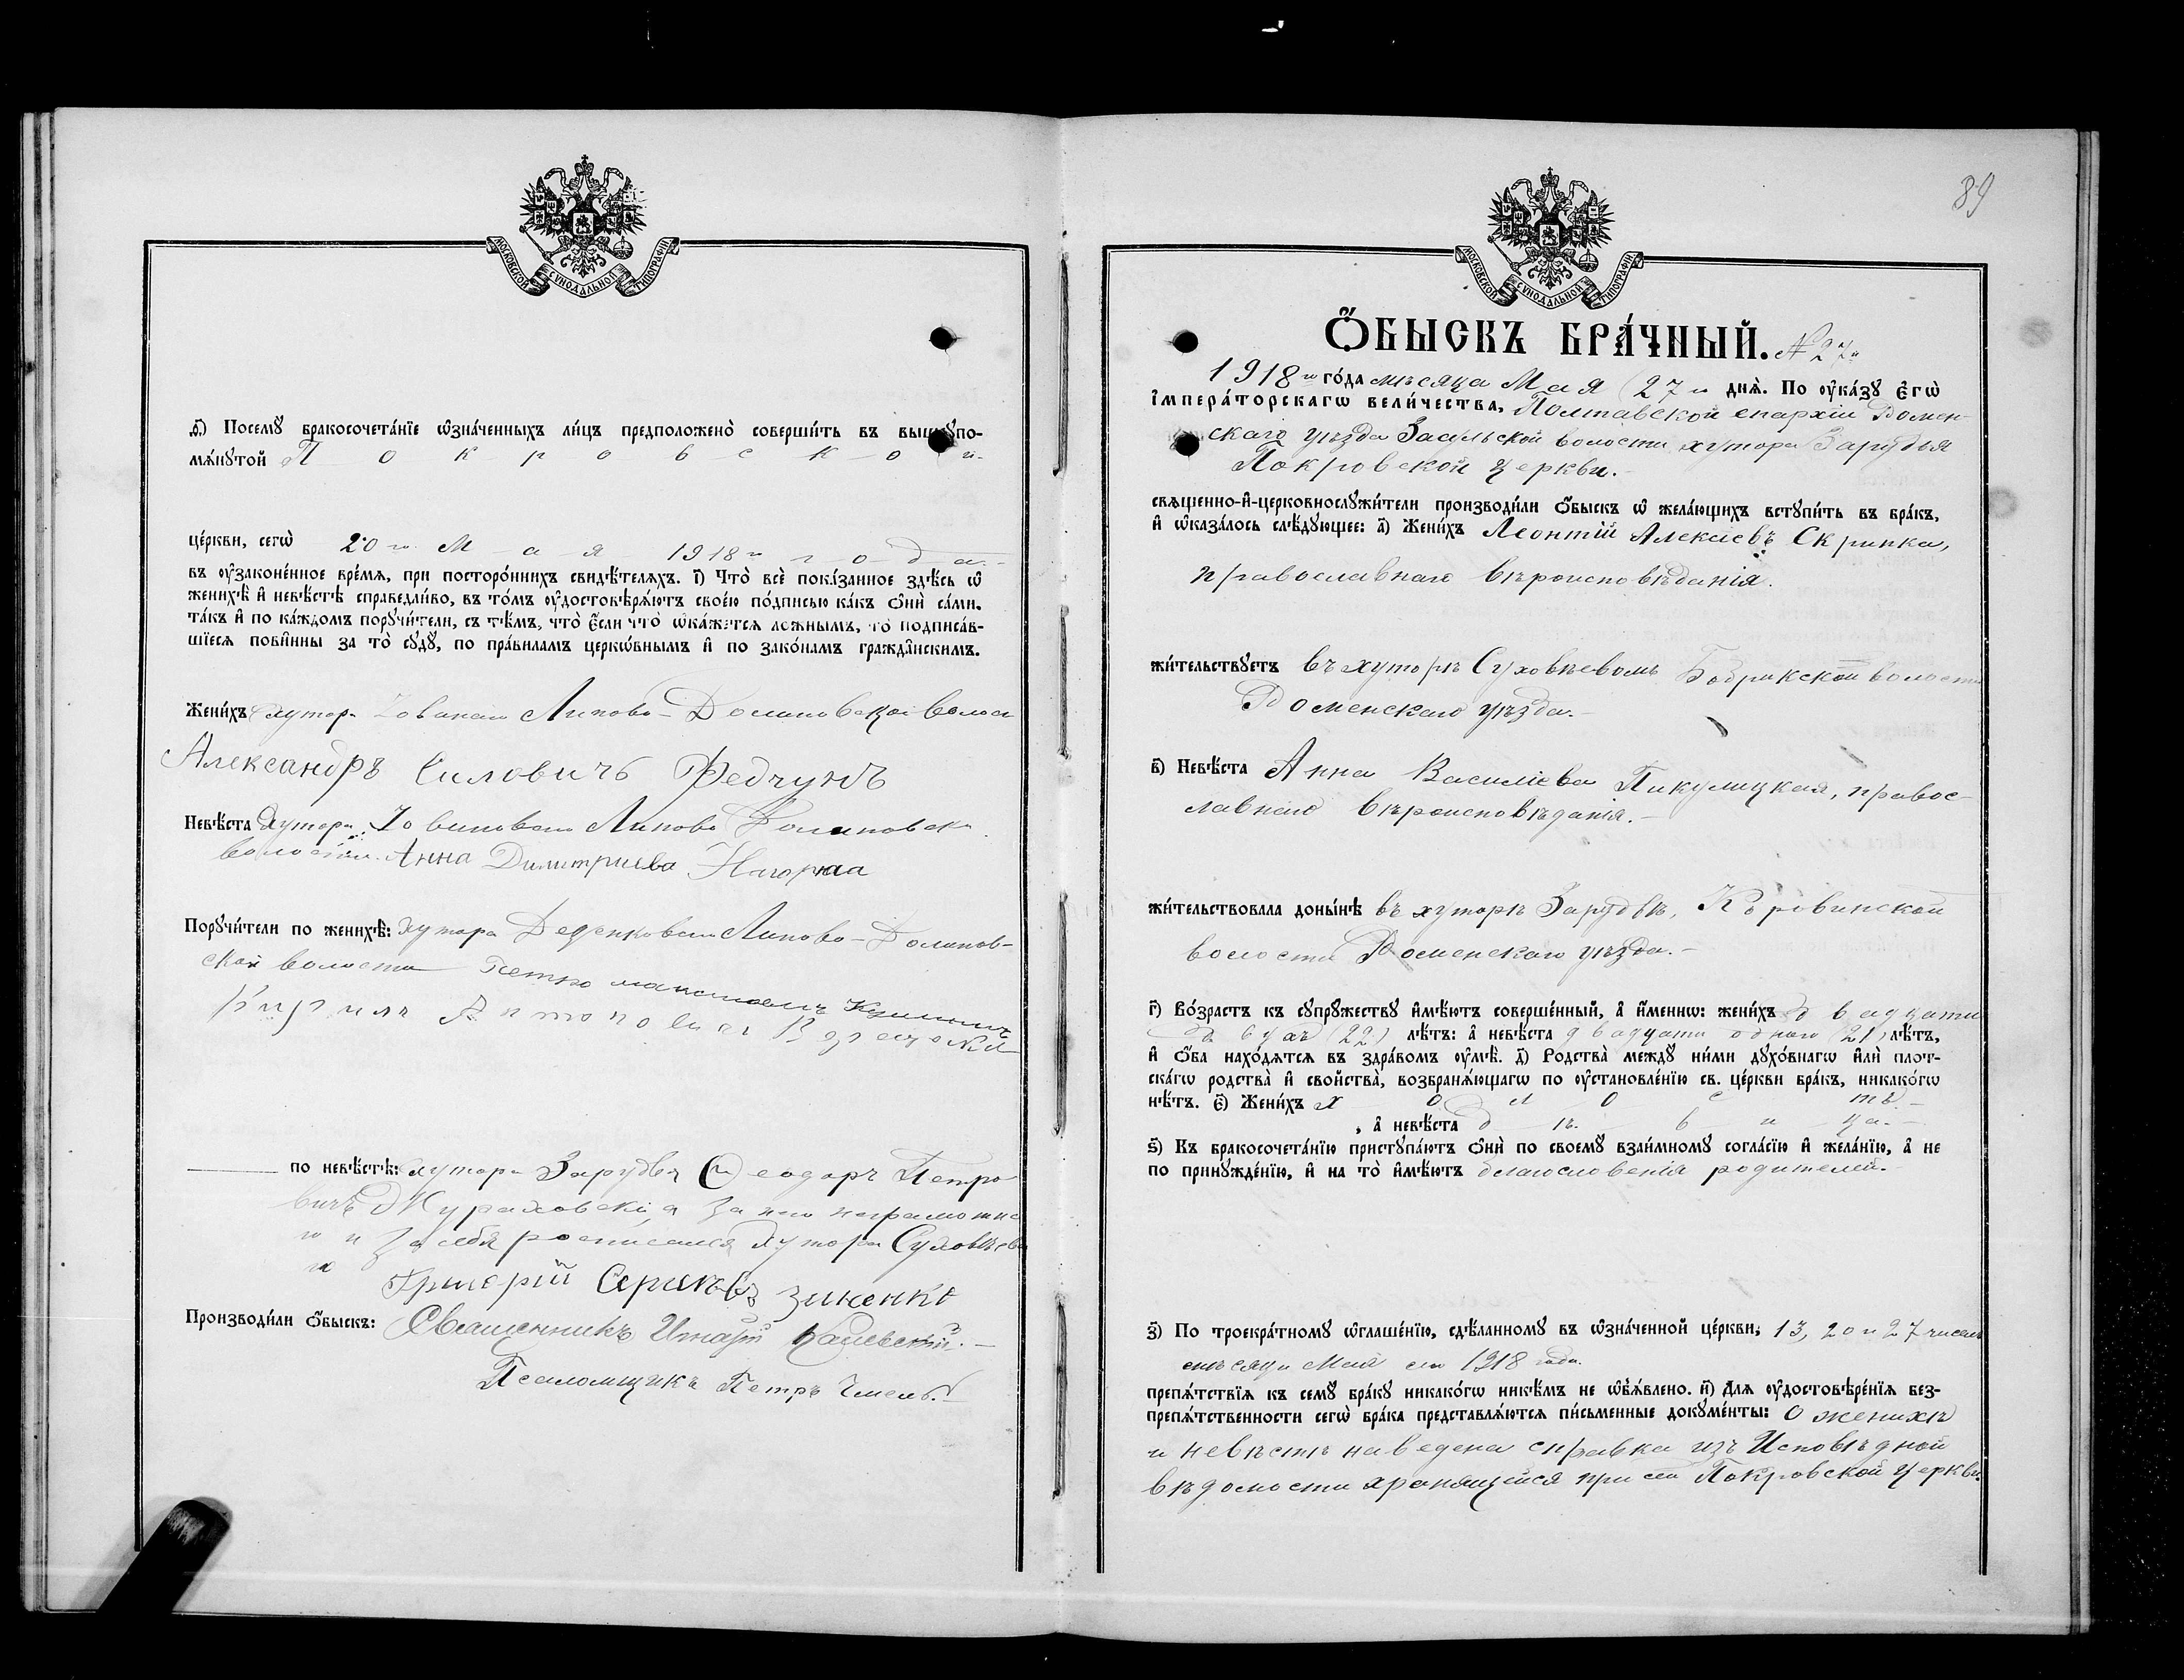 МОСКОВСКОЙ СѴНОДАЛЬНОЙ ТИПОГРАФІИ
д҃) Посемꙋ̀ бракосочета́нїе ѡ҆зна́ченныхъ ли́цъ предположено̀ соверши́ть въ вышеꙋпо-
мѧ́нꙋтой Покровской
це́ркви, сегѡ̀ 20 го Мая 1918 го года.
въ ᲂу҆зако́ненное вре́мѧ, при посторо́ннихъ свидѣ́телѧхъ. ı҃) Что̀ всѐ пока́занное здѣ́сь ѡ҆
женихѣ̀ и҆ невѣ́стѣ справедли́во, въ то́мъ ᲂу҆достовѣрѧ́ютъ свое́ю по́дписью ка́къ ѻ҆нѝ са́ми,
та́къ и҆ по ка́ждомъ порꙋчи́тели, съ тѣ́мъ, что̀ є҆́сли что̀ ѡ҆ка́жетсѧ ло́жнымъ, то̀ подписа́в-
шїесѧ пови́нны за то̀ сꙋдꙋ̀, по пра́виламъ церко́внымъ и҆ по зако́намъ гражда́нскимъ.
Жени́хъ хутора Липово-Долиновской волос
Александръ Силовичъ Федчунъ
Невѣ́ста Хутора Липово Долиновск
волости Анна Димитриева Нагорная
Порꙋчи́тели по женихѣ̀: Хутора Липово-Долинов-
ской волости Петро
по невѣ́стѣ: хутора Зарудья Ѳеодоръ Петро
вичъ Жураховскій, а за него неграмотна
го и за себя росписался хутора Суховѣева
Григорій Зиненко
Производи́ли ѻ҆́быскъ: Священникъ
Псаломщикъ Петръ
89
МОСКОВСКОЙ СѴНОДАЛЬНОЙ ТИПОГРАФІИ
Ѻ҆́БЫСКЪ БРА́ЧНЫЙ. № 27й
1918 го го́да мѣсяца Мая (27 го днѧ̀. По ᲂу҆ка́зꙋ Є҆гѡ̀
і҆мпера́торскагѡ вели́чества, Полтавской епархіи Ромен-
скаго уѣзда Засульской волости хутора Зарудья
Покровской церкви.
свѧще́нно-и҆-церковнослꙋжи́тели производи́ли ѻ҆́быскъ ѡ҆ жела́ющихъ встꙋпи́ть въ бра́къ,
и҆ ѡ҆каза́лось слѣ́дꙋющее: а҃) Жени́хъ Леонтій Алексіевъ Скрипка,
православнаго вѣроисповѣданія.
жи́тельствꙋетъ въ хуторѣ Суховѣевомъ Бобрикской волости
Роменскаго уѣзда.
в҃) Невѣ́ста Анна Василіева Пикулицкая, правос-
лавнаго вѣроисповѣданія.
жи́тельствовала доны́нѣ въ хуторѣ Зарудьѣ, Коровинской
волости Роменскаго уѣзда.
г҃) Во́зрастъ къ сꙋпрꙋ́жествꙋ и҆мѣ́ютъ соверше́нный, а҆ и҆́меннѡ: жени́хъ двадцати
двухъ (22) лѣ́тъ: а҆ невѣ́ста двадцати одного (21) лѣ́тъ,
и҆ ѻ҆́ба нахо́дѧтсѧ въ здра́вомъ ᲂу҆мѣ̀. д҃) Родства̀ междꙋ̀ ни́ми дꙋхо́внагѡ и҆лѝ плот-
ска́гѡ родства̀ и҆ свойства̀, возбранѧ́ющагѡ по ᲂу҆становле́нїю св. це́ркви бра́къ, никако́гѡ
нѣ́тъ. є҃) Жени́хъ холостъ
, а҆ невѣ́ста дѣвица.
ѕ҃) Къ бракосочета́нїю пристꙋпа́ютъ ѻ҆нѝ по своемꙋ̀ взаи́мномꙋ согла́сїю и҆ жела́нїю, а҆ не
по принꙋжде́нїю, и҆ на то̀ и҆мѣ́ютъ благословенія родителей.
з҃) По троекра́тномꙋ ѡ҆глаше́нїю, сдѣ́ланномꙋ въ ѡ҆зна́ченной це́ркви, 13, 20 и 27 чиселъ
мѣсяца Мая сего 1918 года.
препѧ́тствїѧ къ семꙋ̀ бра́кꙋ никако́гѡ никѣ́мъ не ѡ҆б̾ѧ́влено. и҃) Для ᲂу҆достовѣре́нїѧ без-
препѧ́тственности сегѡ̀ бра́ка представлѧ́ютсѧ пи́сьменные докꙋме́нты: О женихѣ
и невѣстѣ наведена справка изъ Исповѣдной
вѣдомости хранящейся при сей Покровской церкви.